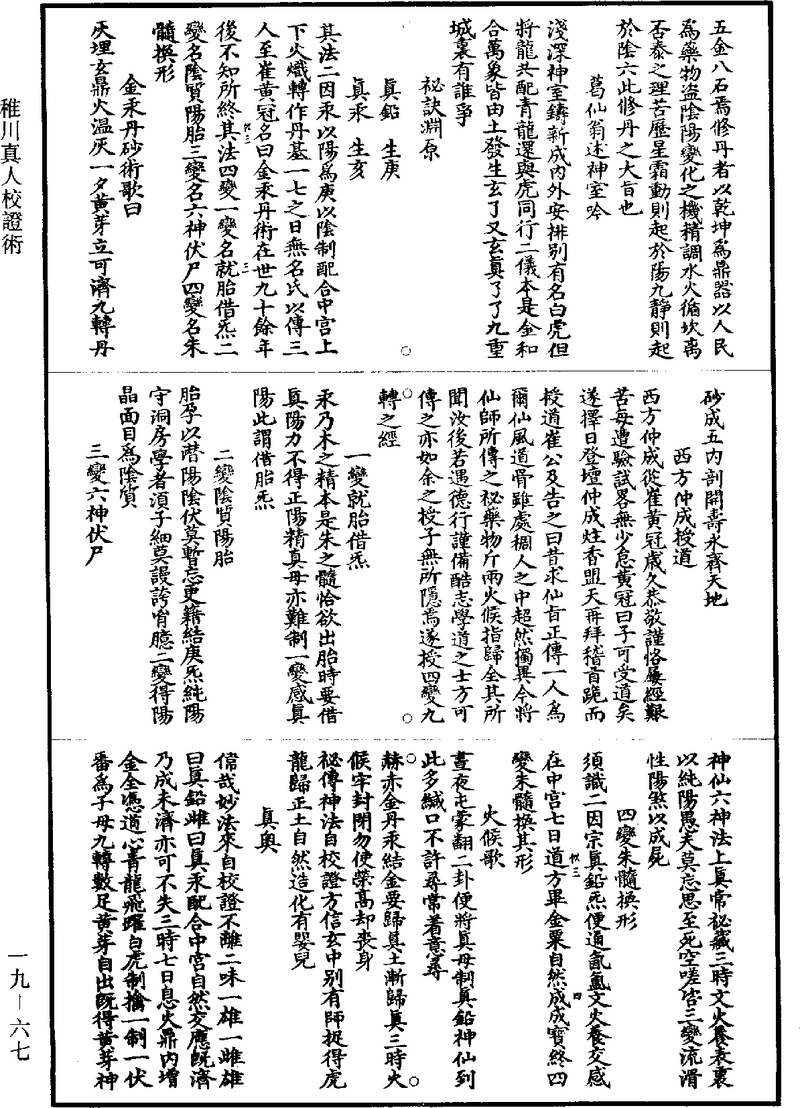 五金八石焉修丹者以乾坤爲鼎器以人民
爲藥物盗陰陽變化之機精調水火循坎离
否泰之理苦歷星霜動則起於陽九靜則起
於陰六此修丹之大旨也
葛仙翁述神室吟
淺深神室鑄新成内外安排别有名白虎但
將龍共配青龍還與虎同行二儀本是金和
合萬象皆由土發生玄了又玄真了了九重
城裏有誰爭
秘訣淵原
真鉛 生庚
真汞 生亥
其法二因汞以陽爲庚以陰制配合中宫上
下火熾轉作丹基一七之日無名氏以傳三
人至崔黄冠名曰金汞丹術在世九十餘年
後不知所終其法四變一變名就胎借炁二
變名陰質陽胎三變名六神伏尸四變名朱
髓换形
金汞丹砂術歌曰
灰埋玄鼎火温灰一夕黄芽立可濟九轉丹
砂成五内剖開壽永齊天地
西方仲成授道
西方仲成從崔黄冠歲久恭敬謹恪屢經艱
苦每遭驗試畧無少怠黄冠曰子可受道矣
遂擇日登壇仲成炷香盟天再拜稽首跪而
授道崔公乃告之曰昔求仙旨正傳一人爲
爾仙風道骨雖處稠人之中超然獨異今將
仙師所傳之秘藥物斤兩火候指歸全其所
聞汝後若遇德行謹備酷志學道之士方可
傳之亦如余之授子無所隱焉遂授四變九
轉之經
一變就胎借炁
汞乃木之精本是朱之髓恰欲出胎時要借
真陽力不得正陽精真母亦難制一變感真
陽此謂借胎炁
二變陰質陽胎
胎孕以潜陽陰伏莫暫忘更籍結庚炁純陽
守洞房學者湏子細莫謾誇胷臆二變得陽
晶面目爲陰質
三變六神伏尸
神仙六神法上真常祕藏三時文火養表裏
以純陽愚夫莫忘思至死空嗟咨三變流滑
性陽煞以成屍
四變朱髓换形
須識二因宗真鉛炁便通氤氳文火養交感
在中宫七日道方畢金粟自然成成寳終四
變朱髓换其形
火候歌
晝夜屯蒙翻二卦便將真母制真鉛神仙到
此多緘口不許尋常着意尋
赫赤金丹汞結金要歸真土漸歸真三時火
候牢封閉勿使榮髙却喪身
祕傳神法自校證方信玄中别有師捉得虎
龍歸正土自然造化有嬰兒
真奥
偉哉妙法來自校證不離二味一雄一雌雄
曰真鉛雌曰真汞配合中宫自然交應既濟
乃成未濟亦可不失三時七日息火鼎内增
金全憑道心青龍飛躍白虎制擒一制一伏
番爲子母九轉數足黄芽自出既得黄芽神
稚川真人校證術
一九—六七